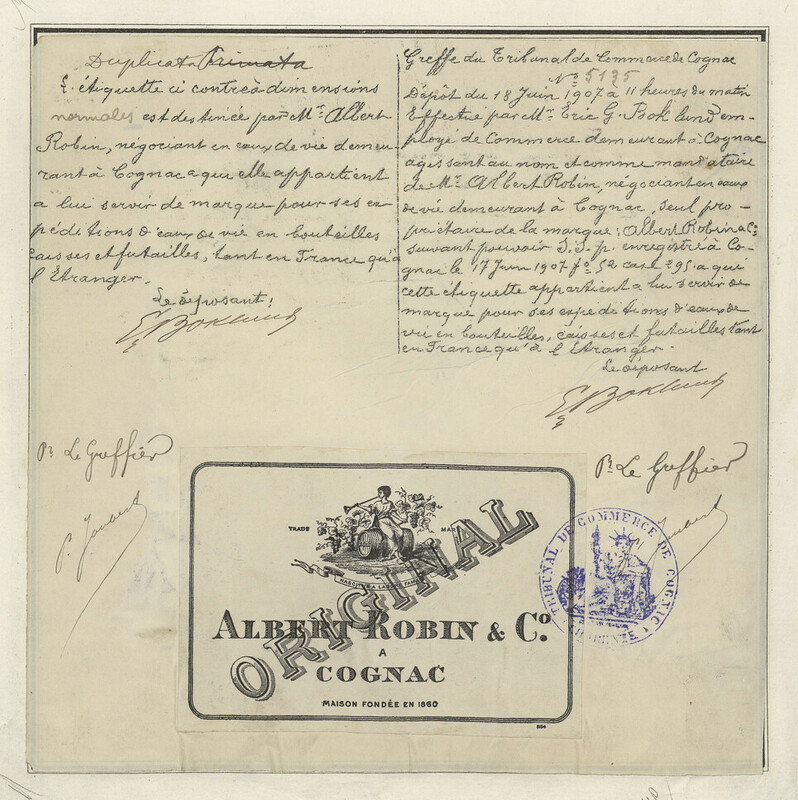 Duplicata Primata
L'étiquette ci contre à dimensions
normales est destinée par Mr. Albert
Robin, négociant en eaux de vie demeu-
rant à Cognac a qui elle appartient
a lui servir de marque pour ses ex
péditions d'eaux de vie en bouteilles
caisses et futailles, tant en France qu'à
l'Etranger.
Le déposant:
E. G. Boklund
Greffe du Tribunal de Commerce de Cognac
No 5135
Dépôt du 18 Juin 1907 a 11 heures du matin
Effectué par Mr. Eric G. Boklund em-
ployé de Commerce demeurant à Cognac
agissant au nom et comme mandataire
de Mr. Albert Robin, négociant en eaux
de vie demeurant à Cognac, seul pro-
priétaire de la marque: Albert Robin & Co
suivant pouvoir S.S.p. enregistré à Co-
gnac le 17 Juin 1907 fo 52 case 295 a qui
cette étiquette appartient a lui servir de
marque pour ses expéditions d'eaux de
vie en bouteilles, caisses et futailles tant
en France qu'à l'Etranger.
Le déposant
E. G. Boklund
Pr. Le Greffier
P. Joubert
Pr. Le Greffier
Joubert
TRADE MARK
ORIGINAL
ALBERT ROBIN & Co.
A
COGNAC
MAISON FONDÉE EN 1860
TRIBUNAL DE COMMERCE DE COGNAC
CHARENTE